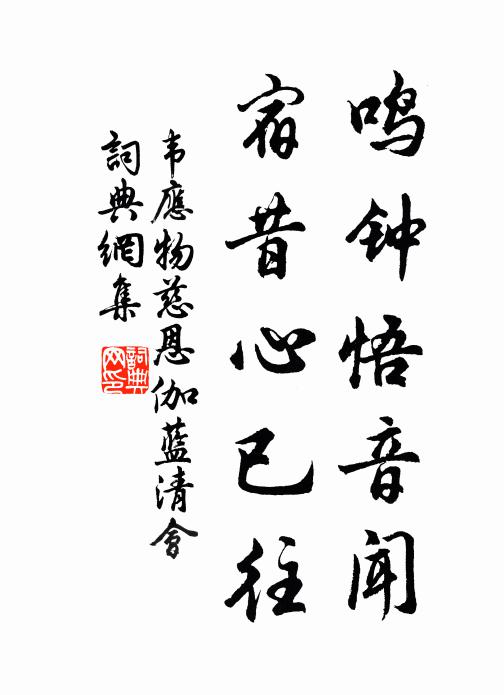 鸣钟悟音闻
宿昔心已往
韦應物慈恩伽藍清會
詞典網集
詞典网印